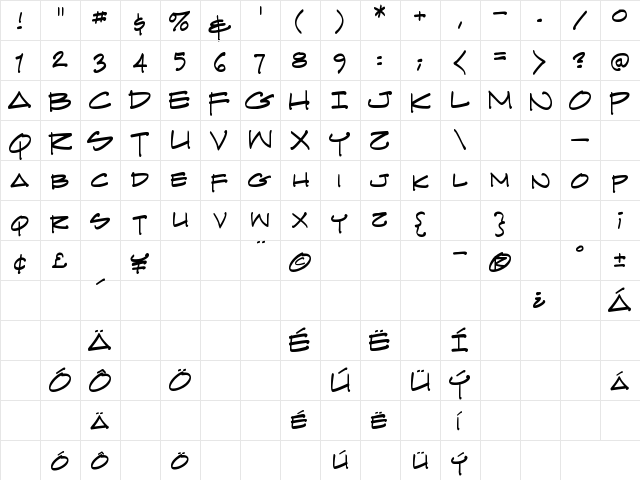 ! " # $ % & ' ( ) * + , - . / 0
1 2 3 4 5 6 7 8 9 : ; < = > ? @
A B C D E F G H I J K L M N O P
Q R S T U V W X Y Z \ –
A B C D E F G H I J K L M N O P
Q R S T U V W X Y Z { } ¡
¢ £ ¥ ¨ © ¯ ® ° ±
´ ¿ Á
Ä É Ë Í
Ó Ô Ö Ú Ü Ý á
ä é ë í
ó ô ö ú ü ý